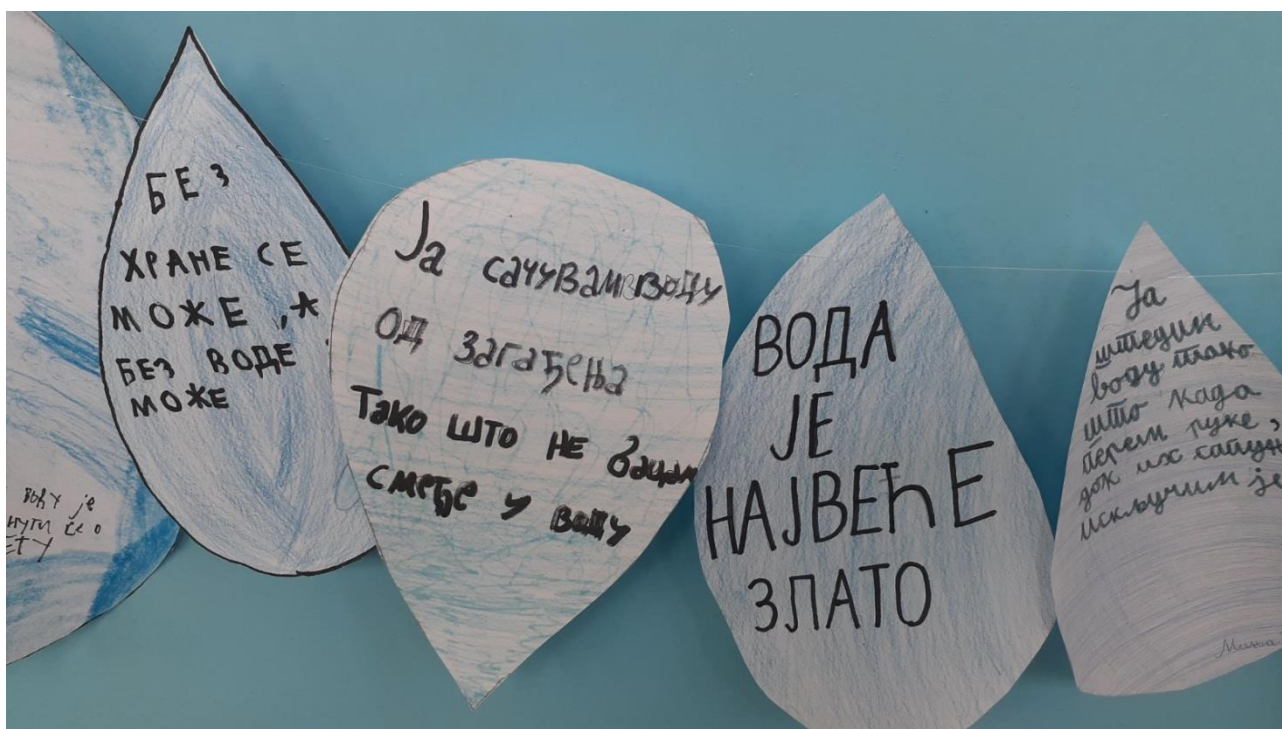 воду је
нути ће о
ЕТУ
БЕЗ
ХРАНЕ СЕ
МОЖЕ ,*
БЕЗ ВОДЕ
МОЖЕ
Ја сачувам воду
од загађења
Тако што не бацам
смеђе у воду
ВОДА
ЈЕ
НАЈВЕЋЕ
ЗЛАТО
Ја
штедим
воду тако
што када
перем руке,
док их сапун
искључим је